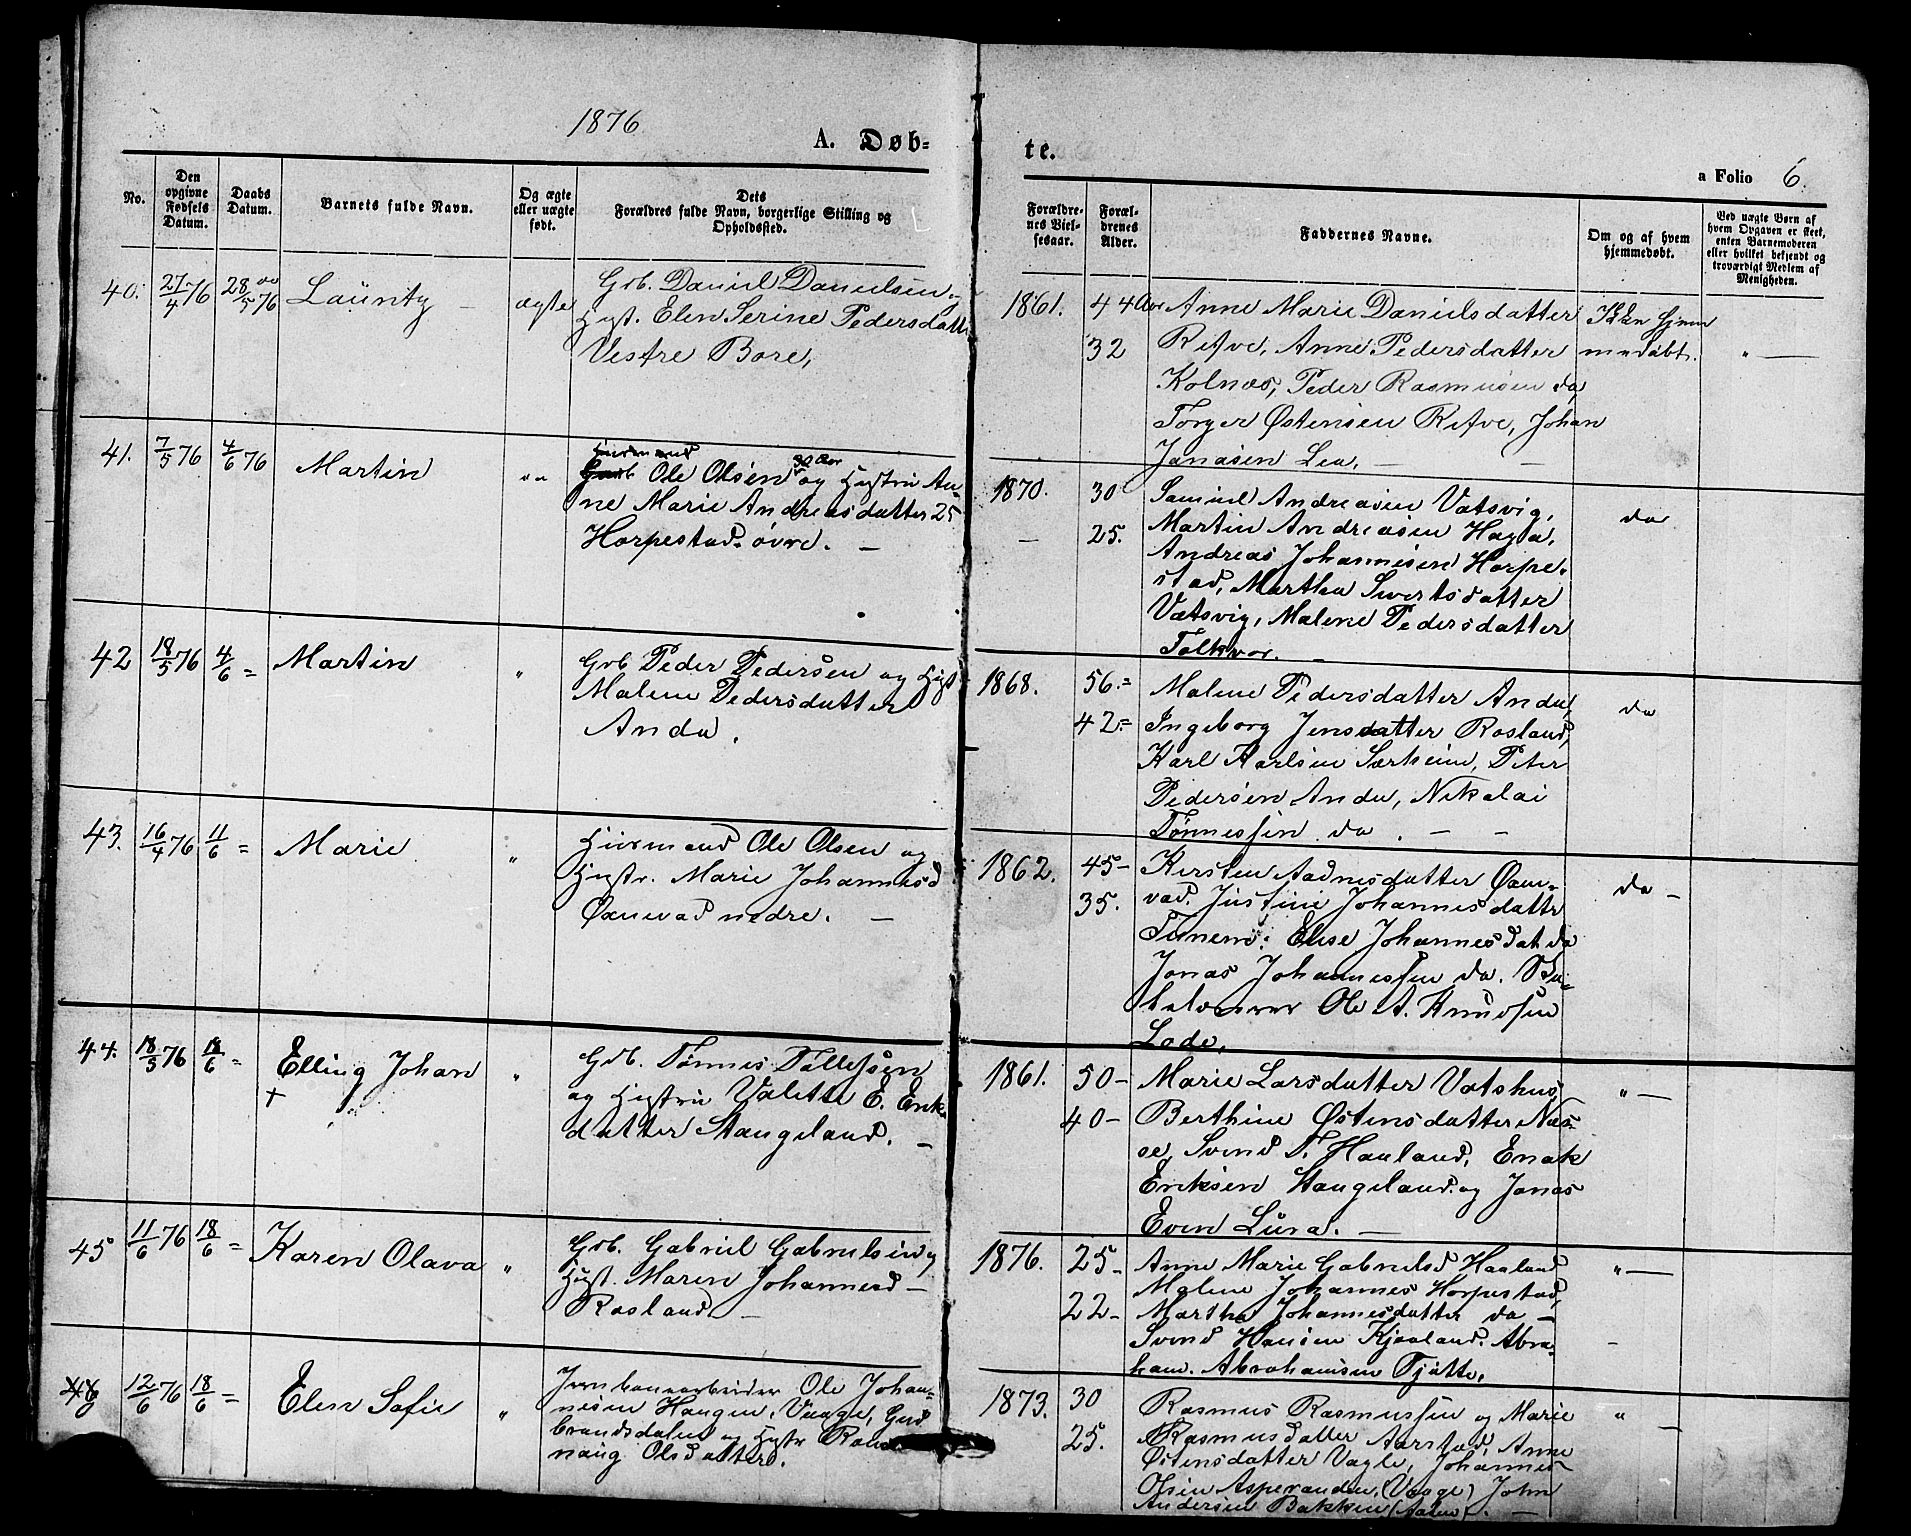 1876
A. Døb-
te.
a Folio 6.
No.
Den opgivne Fødsels Datum.
Daabs Datum.
Barnets fulde Navn.
Og ægte eller uægte født.
Dets Forældres fulde Navn, borgerlige Stilling og Opholdssted.
Forældrenes Vielsesaar.
Forældrenes Alder.
Faddernes Navne.
Om og af hvem hjemmedøbt.
Ved uægte Børn af hvem Opgaven er skeet, enten Barnemoderen eller hvilket bekjendt og troværdigt Medlem af Menigheden.
40. 27/4 76 28/5 76 Lauritz - ægte
Grb. Daniel Danielsen og
Hust. Elen Serine Pedersdatter
Vestre Bore,
1861. 44 Aar
32
Anne Marie Danielsdatter
Refve, Anne Pedersdatter
Kolnæs, Peder Rasmusen do,
Torger Østensen Refve, Johan
Jonasen Lea. -
Ikke hjem
medøbt.
" -
41. 7/5 76 4/6 76 Martin "
Huusmand
Gaardb Ole Olsen 30 Aar og Hustru An-
ne Marie Andreasdatter 25
Horpestad øvre. -
1870. 30
- 25.
Samuel Andreasen Vatsvig,
Martin Andreasen Haga,
Andreas Johannesen Horpe-
stad, Martha Sivertsdatter
Vatsvig, Malene Pedersdatter
Folkvor. -
do
42 18/5 76 4/6 = Martin "
Grb Peder Pedersen og Hust
Malene Pedersdatter
Anda.
1868. 56.=
42=
Malene Pedersdatter Anda,
Ingeborg Jensdatter Rosland,
Karl Karlsen Særheim, Peter
Pedersen Anda, Nikolai
Tønnessen do. - -
do
43. 16/4 76 11/6 = Marie "
Huusmand Ole Olsen og
Hustr. Marie Johannesd
Øxnevad nedre. -
1862. 45-
35.
Kirsten Aadnesdatter Øxne-
vad. Justine Johannesdattr
Tunem: Elise Johannesdat. do
Jonas Johannessen do. Sko-
lelærer Ole A. Knudsen
Lode.
do -
44. 18/5 76 18/6 = Elling Johan "
+
Grb. Tønnes Tollefsen
og Hustru Valette E. Erik-
datter Stangeland. -
1861. 50-
40-
Marie Larsdatter Vatshus,
Berthine Østensdatter Næs-
se, Svend T. Haaland, Enok
Eriksen Stangeland og Jonas
Even Lura. -
" -
45 11/6 76 18/6 = Karen Olava "
Grb. Gabriel Gabrielsen og
Hust. Maren Johannesd -
Rosland -
1876. 25-
22-
Anne Marie Gabrielsd Haaland
Malene Johannes Horpestad,
Martha Johannesdatter do -
Svend Hansen Kjaaland. Abra-
ham. Abrahamsen Tjøtte.
" -
46 12/6 76 18/6 = Elen Sofie "
Jernbanearbeider Ole Johan-
nesen Haugen, Vaage, Gud
brandsdalen og Hustr
naug Olsdatter.
1873. 30
25.
Rasmus Rasmussen og Marie
Rasmusdatter Aarstad, Anne
Østensdatter Vagle, Johannes
Olsen Asperanden, (Vaage) John
Andersen Bakken -
" -